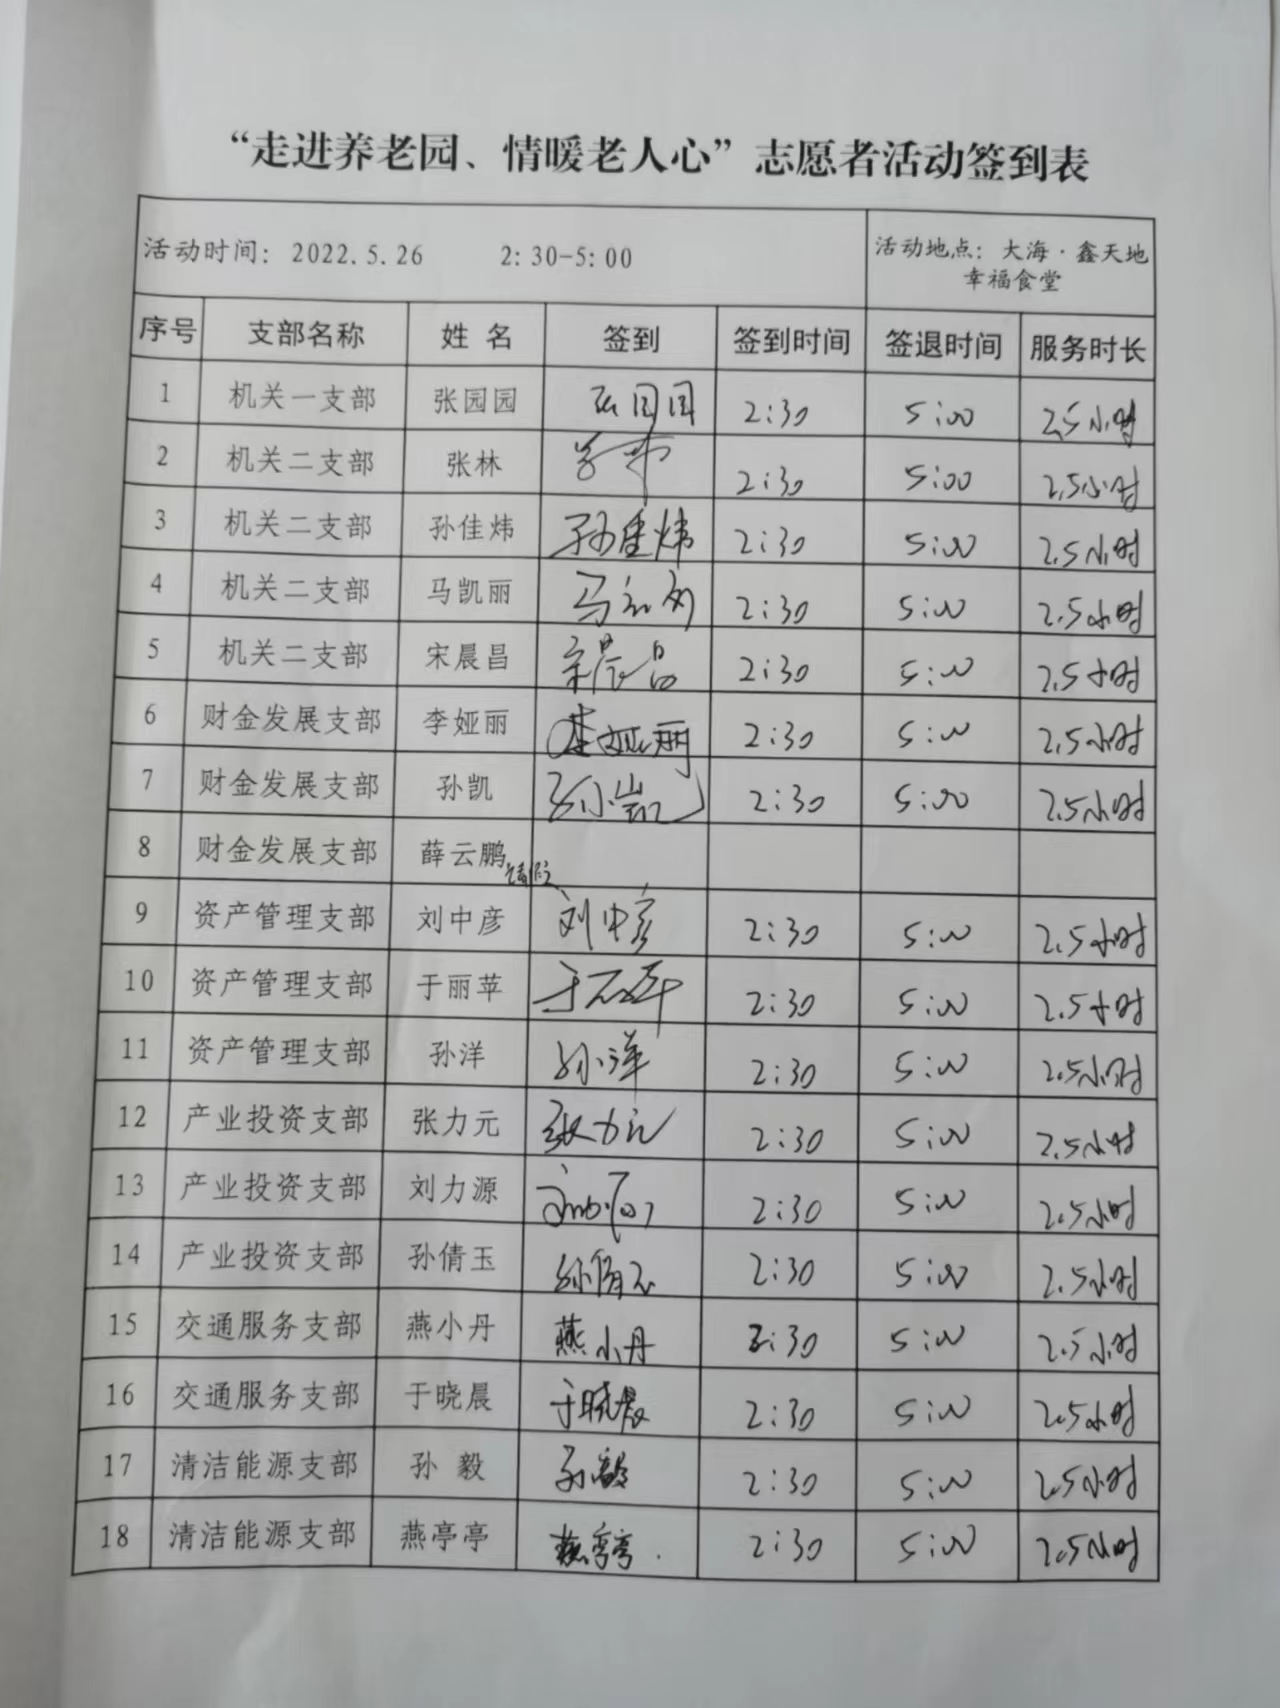 “走进养老园、情暖老人心”志愿者活动签到表
活动时间：2022.5.26 2:30-5:00 活动地点：大海·鑫天地
幸福食堂
序号 支部名称 姓 名 签到 签到时间 签退时间 服务时长
1 机关一支部 张园园 张园园 2:30 5:00 2.5小时
2 机关二支部 张林 张林 2:30 5:00 2.5小时
3 机关二支部 孙佳炜 孙佳炜 2:30 5:00 2.5小时
4 机关二支部 马凯丽 马凯丽 2:30 5:00 2.5小时
5 机关二支部 宋晨昌 宋晨昌 2:30 5:00 2.5小时
6 财金发展支部 李娅丽 李娅丽 2:30 5:00 2.5小时
7 财金发展支部 孙凯 孙凯 2:30 5:00 2.5小时
8 财金发展支部 薛云鹏 请假
9 资产管理支部 刘中彦 刘中彦 2:30 5:00 2.5小时
10 资产管理支部 于丽苹 于丽苹 2:30 5:00 2.5小时
11 资产管理支部 孙洋 孙洋 2:30 5:00 2.5小时
12 产业投资支部 张力元 张力元 2:30 5:00 2.5小时
13 产业投资支部 刘力源 刘力源 2:30 5:00 2.5小时
14 产业投资支部 孙倩玉 孙倩玉 2:30 5:00 2.5小时
15 交通服务支部 燕小丹 燕小丹 2:30 5:00 2.5小时
16 交通服务支部 于晓晨 于晓晨 2:30 5:00 2.5小时
17 清洁能源支部 孙 毅 孙毅 2:30 5:00 2.5小时
18 清洁能源支部 燕亭亭 燕亭亭 2:30 5:00 2.5小时